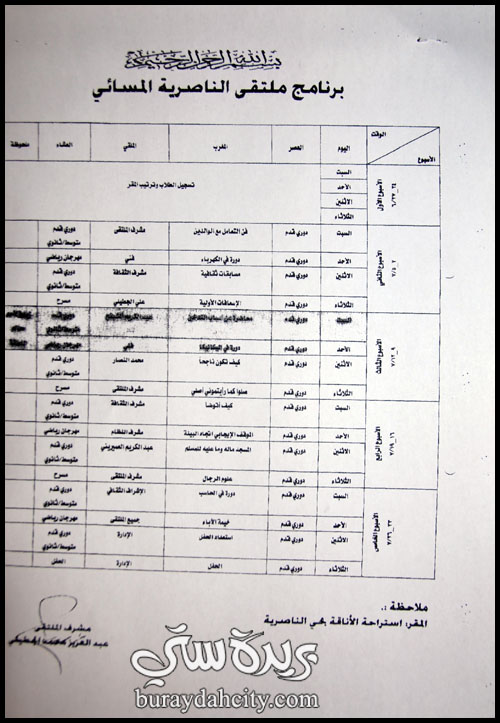 بسم الله الرحمن الرحيم
برنامج ملتقى الناصرية المسائي
الوقت
الأسبوع
اليوم
العصر
المغرب
الملقي
العشاء
ملحوظة
الأسبوع الأول
السبت
الأحد
الاثنين
الثلاثاء
تسجيل الطلاب وترتيب المقر
الأسبوع الثاني
السبت دوري قدم فن التعامل مع الوالدين مشرف الملتقى دوري قدم متوسط/ثانوي
الأحد دوري قدم دورة في الكهرباء فني مهرجان رياضي
الاثنين دوري قدم مسابقات ثقافية مشرف الثقافة دوري قدم متوسط/ثانوي
الثلاثاء دوري قدم الإسعافات الأولية مسرح
الأسبوع الثالث
السبت دوري قدم
الأحد دوري قدم دورة في الميكانيكا فني مهرجان رياضي
الاثنين دوري قدم كيف تكون ناجحا محمد النصار دوري قدم متوسط/ثانوي
الثلاثاء دوري قدم صلوا كما رأيتموني أصلي مشرف الملتقى مسرح
الأسبوع الرابع
السبت دوري قدم كيف أتوضأ مشرف الثقافة دوري قدم متوسط/ثانوي
الأحد دوري قدم الموقف الإيجابي اتجاه البيئة مشرف النظام مهرجان رياضي
الاثنين دوري قدم المسجد ماله وما عليه للمسلم عبد الكريم دوري قدم متوسط/ثانوي
الثلاثاء دوري قدم علوم الرجال مشرف الملتقى مسرح
الأسبوع الخامس
السبت دوري قدم دورة في الحاسب الإشراف الثقافي دوري قدم متوسط/ثانوي
الأحد دوري قدم خيمة الأباء جميع الملتقى مهرجان رياضي
الاثنين دوري قدم استعداد الحفل الإدارة دوري قدم متوسط/ثانوي
الثلاثاء دوري قدم الحفل الإدارة الحفل
ملاحظة :.
المقر: استراحة الأناقة بحي الناصرية
مشرف الملتقى
عبد العزيز محمد
بريدة ستي
buraydahcity.com